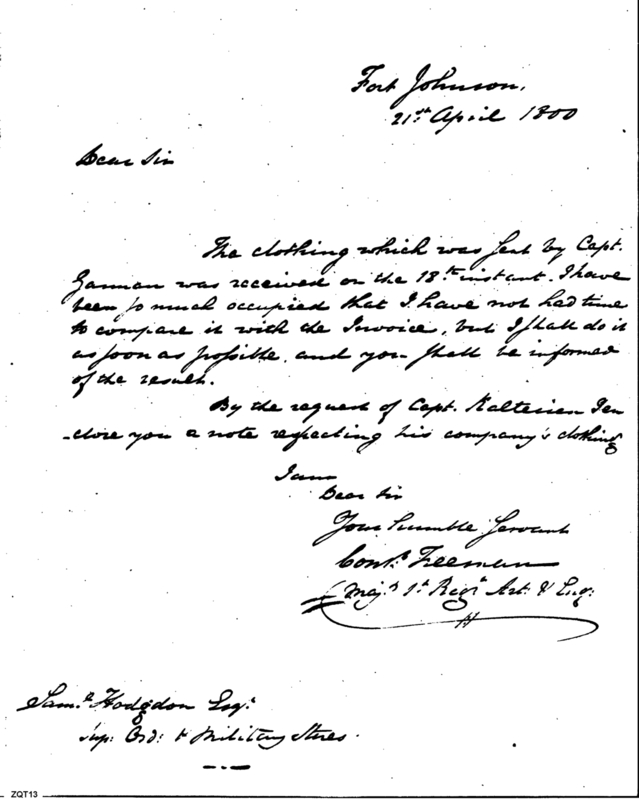 Fort Johnson,
21st April 1800
Dear Sir
The clothing which was sent by Capt.
was received on the 18th instant. I have
been so much occupied that I have not had time
to compare it with the Invoice, but I shall do it
as soon as possible, and you shall be informed
of the result.
By the request of Capt. Kalteisen I en
-close you a note respecting his company's clothing
I am
Dear Sir
Your humble Servant
Const. Freeman
Maj. 1st Regt Art: & Eng:
Saml. Hodgdon Esqr.
Sup: Ord: & Military Stores.
ZQT13